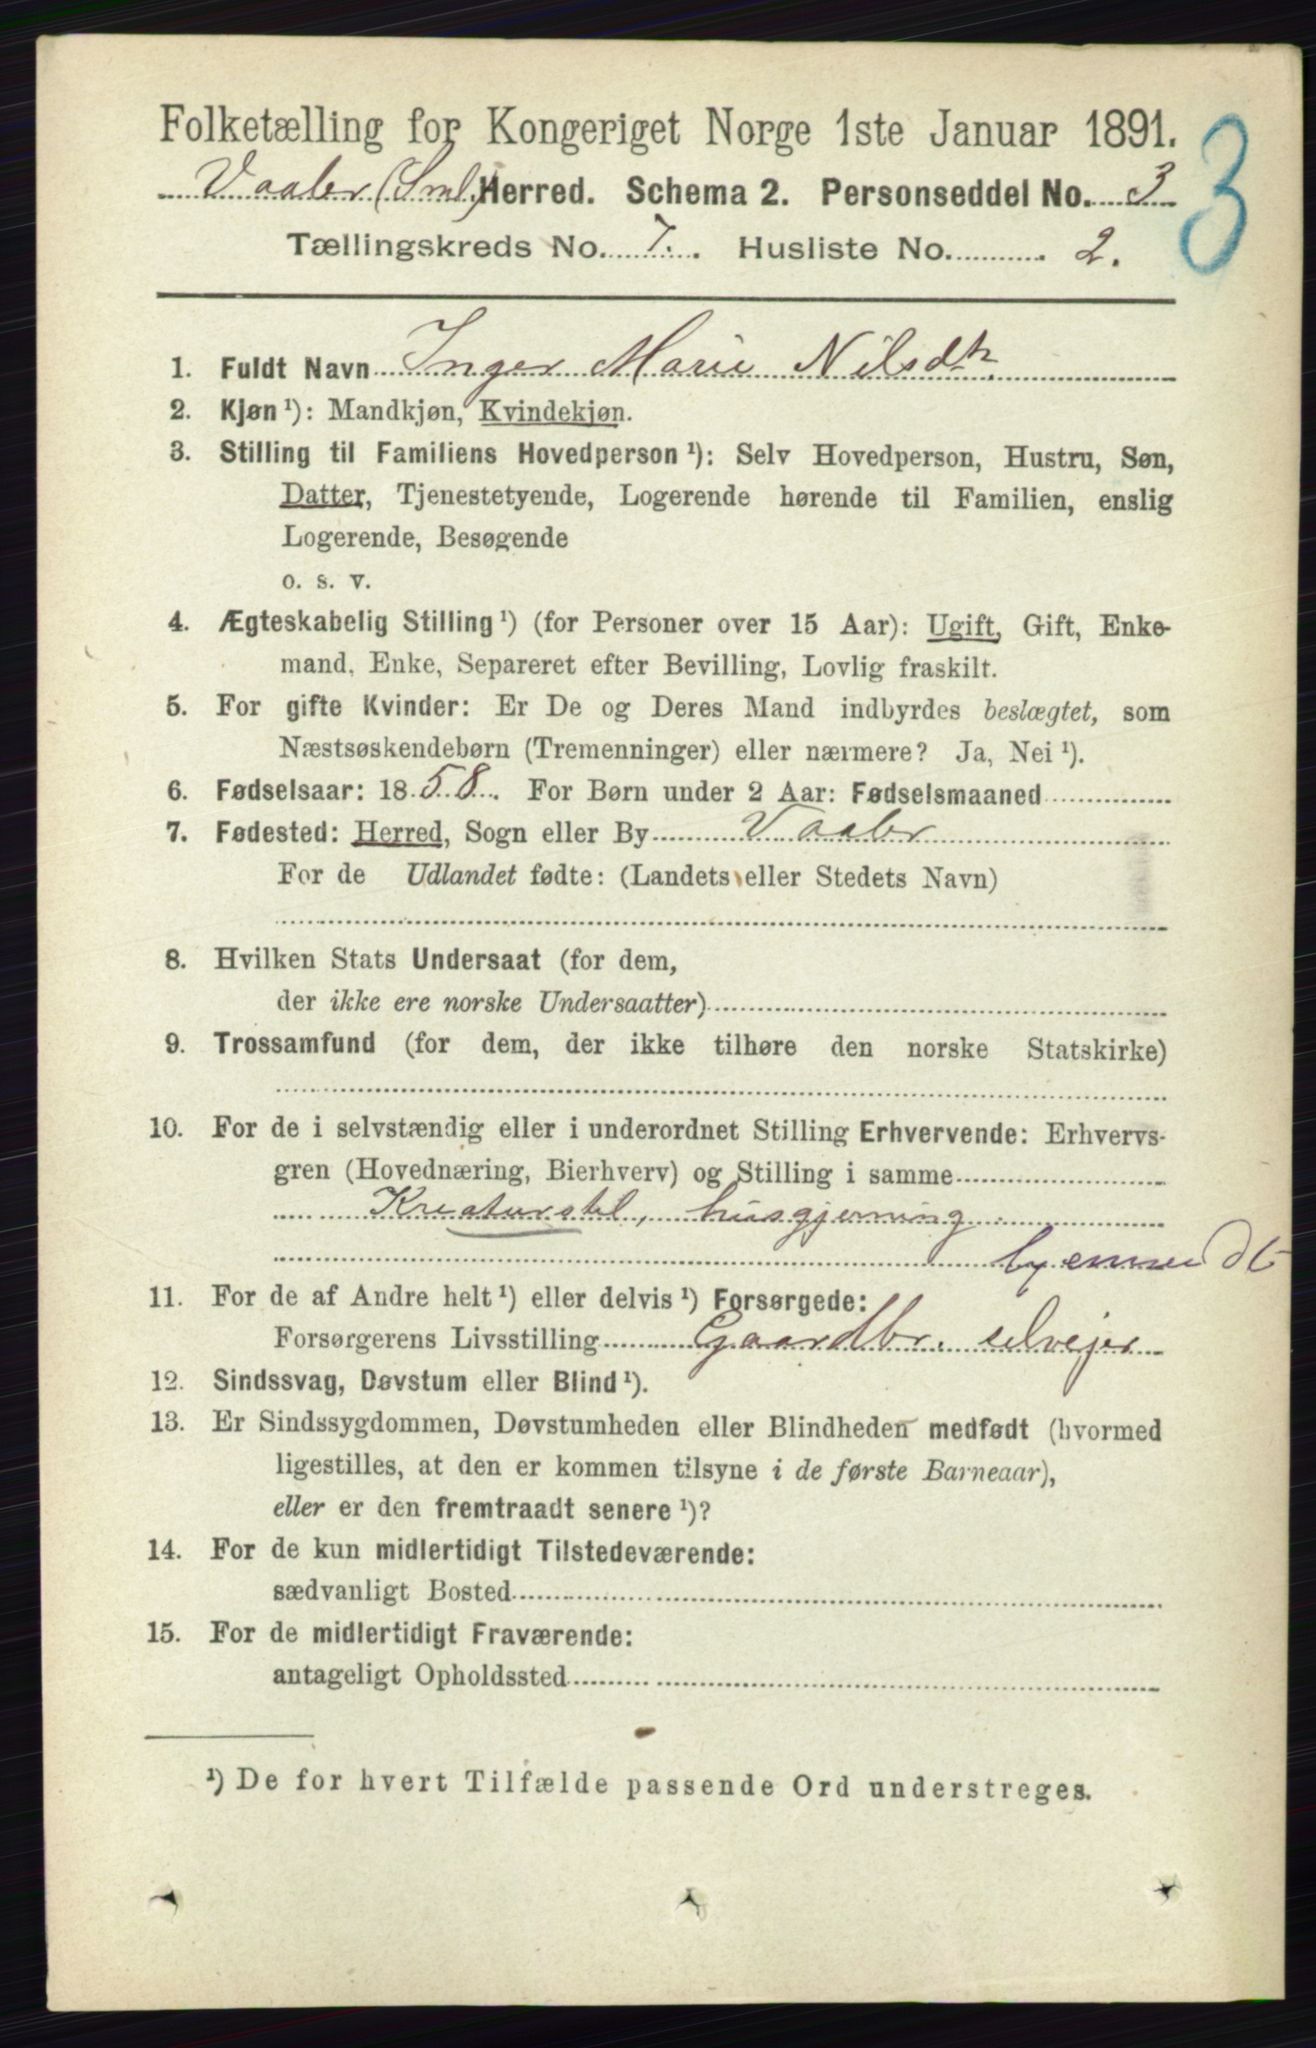 Folketælling for Kongeriget Norge 1ste Januar 1891.
3
Vaaler (Sml) Herred. Schema 2. Personseddel No. 3
Tællingskreds No. 7. Husliste No. 2.
1. Fuldt Navn Inger Marie Nilsdtr.
2. Kjøn ¹): Mandkjøn, Kvindekjøn.
3. Stilling til Familiens Hovedperson ¹): Selv Hovedperson, Hustru, Søn,
Datter, Tjenestetyende, Logerende hørende til Familien, enslig
Logerende, Besøgende
o. s. v.
4. Ægteskabelig Stilling ¹) (for Personer over 15 Aar): Ugift, Gift, Enke-
mand, Enke, Separeret efter Bevilling, Lovlig fraskilt.
5. For gifte Kvinder: Er De og Deres Mand indbyrdes beslægtet, som
Næstsøskendebørn (Tremenninger) eller nærmere? Ja, Nei ¹).
6. Fødselsaar: 1858. For Børn under 2 Aar: Fødselsmaaned
7. Fødested: Herred, Sogn eller By Vaaler
For de Udlandet fødte: (Landets eller Stedets Navn)
8. Hvilken Stats Undersaat (for dem,
der ikke ere norske Undersaatter)
9. Trossamfund (for dem, der ikke tilhøre den norske Statskirke)
10. For de i selvstændig eller i underordnet Stilling Erhvervende: Erhvervs-
gren (Hovednæring, Bierhverv) og Stilling i samme
Kreaturstel, husgjerning
hjemmedt
11. For de af Andre helt ¹) eller delvis ¹) Forsørgede:
Forsørgerens Livsstilling Gaardbr. selvejer
12. Sindssvag, Døvstum eller Blind ¹).
13. Er Sindssygdommen, Døvstumheden eller Blindheden medfødt (hvormed
ligestilles, at den er kommen tilsyne i de første Barneaar),
eller er den fremtraadt senere ¹)?
14. For de kun midlertidigt Tilstedeværende:
sædvanligt Bosted
15. For de midlertidigt Fraværende:
antageligt Opholdssted
¹) De for hvert Tilfælde passende Ord understreges.